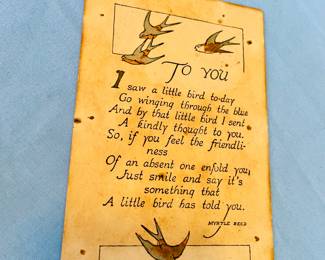 To You
I saw a little bird to-day
Go winging through the blue
And by that little bird I sent
A kindly thought to you.
So, if you feel the friendli-
ness
Of an absent one enfold you,
Just smile and say it's
something that
A little bird has told you.
MYRTLE REED